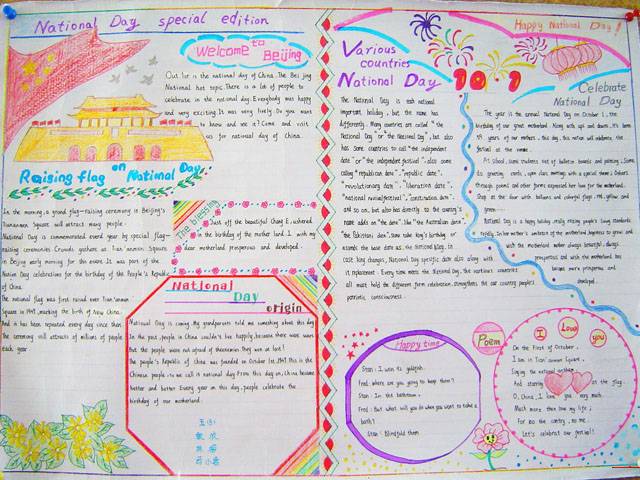 National Day special edition
Welcome to
Beijing
Oct 1st is the national day of China. The Bei jing
National hot topic. There is a lot of people to
celebrate in the national day. Everybody was happy
and very exciting. It was very lively. Do you want
to know and see it? Come and visit
us for national day of China.
Raising flag on National Day
In the morning, a grand flag-raising ceremony is Beijing's
Tiananmen Square will attract many people.
National Day is commemorated every year by special flag-
raising ceremonies. Crowds gathere as Tian'anmen Square
in Beijing early morning for this event. It was part of the
Nation Day celebrations for the birthday of the People's Republic
of China.
The national flag was first raised over Tian'anmen
Square in 1949, marking the birth of New China.
And it has been repeated every day since then.
The ceremony still attracts of millions of people
each year
The blessing
Just off the beautiful Chang E, ushered
in the birthday of the mother land. I wish my
dear motherland prosperous and developed.
National
Day
origin
National Day is coming. My grandparents told me something about this day.
In the past, people in China couldn't be happily, because there were wars.
But the people were not afraid of theenemies they won at last!
The people's Republic of China was founded on October 1st, 1949. this is the
Chinese people. so we call it national day. From this day on, China became
better and better. Every year on this day, people celebrate the
birthday of our motherland.
Various
countries
National Day
10.1
Happy National Day!
Celebrate
National Day
The National Day is each national
important holiday, but the name has
differently. Many countries are called "the
National Day" or "the National Day", but also
has Some countries to call "the independent
date" or "the independent festival". also some
calling "republican date", "republic date",
"revolutionary date", "liberation date",
"national revivalfestival", "construction date"
and so on, but also has directly to the country's
name adds on "the date", like "the Australian date",
"the Pakistan date". Some take king's birthday or
ascends the base date as the National Day, in
case king changes, National Day specific date also along with
it replacement. Every time meets the National Day, the various countries
all must hold the different form celebration, strengthens the our country people's
patriotic consciousness.
The year is the annual National Day on October 1, the
birthday of our great motherland. Along with ups and downs, it's been
years of our mothers, this day, this nation will celebrate, the
festival at the same.
At school, some students out of bulletin boards and painting; Some
do greeting cards, open class meeting, with a special theme; Others
through poems and other forms expressed her love for the motherland.
Shop at the door with balloons and colorful flags, red, yellow and
green......
National Day is a happy holiday, really raising people's living standards
rapidly. In her mother's embrace of the motherland happiness to grow and
wish the motherland mother always beautiful, always
prosperous and wish the motherland has
become more prosperous and
developed.
Happy time
Stan: I won 92 goldfish.
Fred: where are you going to keep them?
Stan: In the bathroom.
Fred: But what will you do when you want to take a
bath?
Stan: Blindfold them
Poem
I Love you
On the First of October,
I am in Tian'anmen Square,
Singing the national anthem,
And staring at the flag.
O, China, I love you very much.
Much more than love my life;
For no the contry, no me.
Let's celebrat our festival!